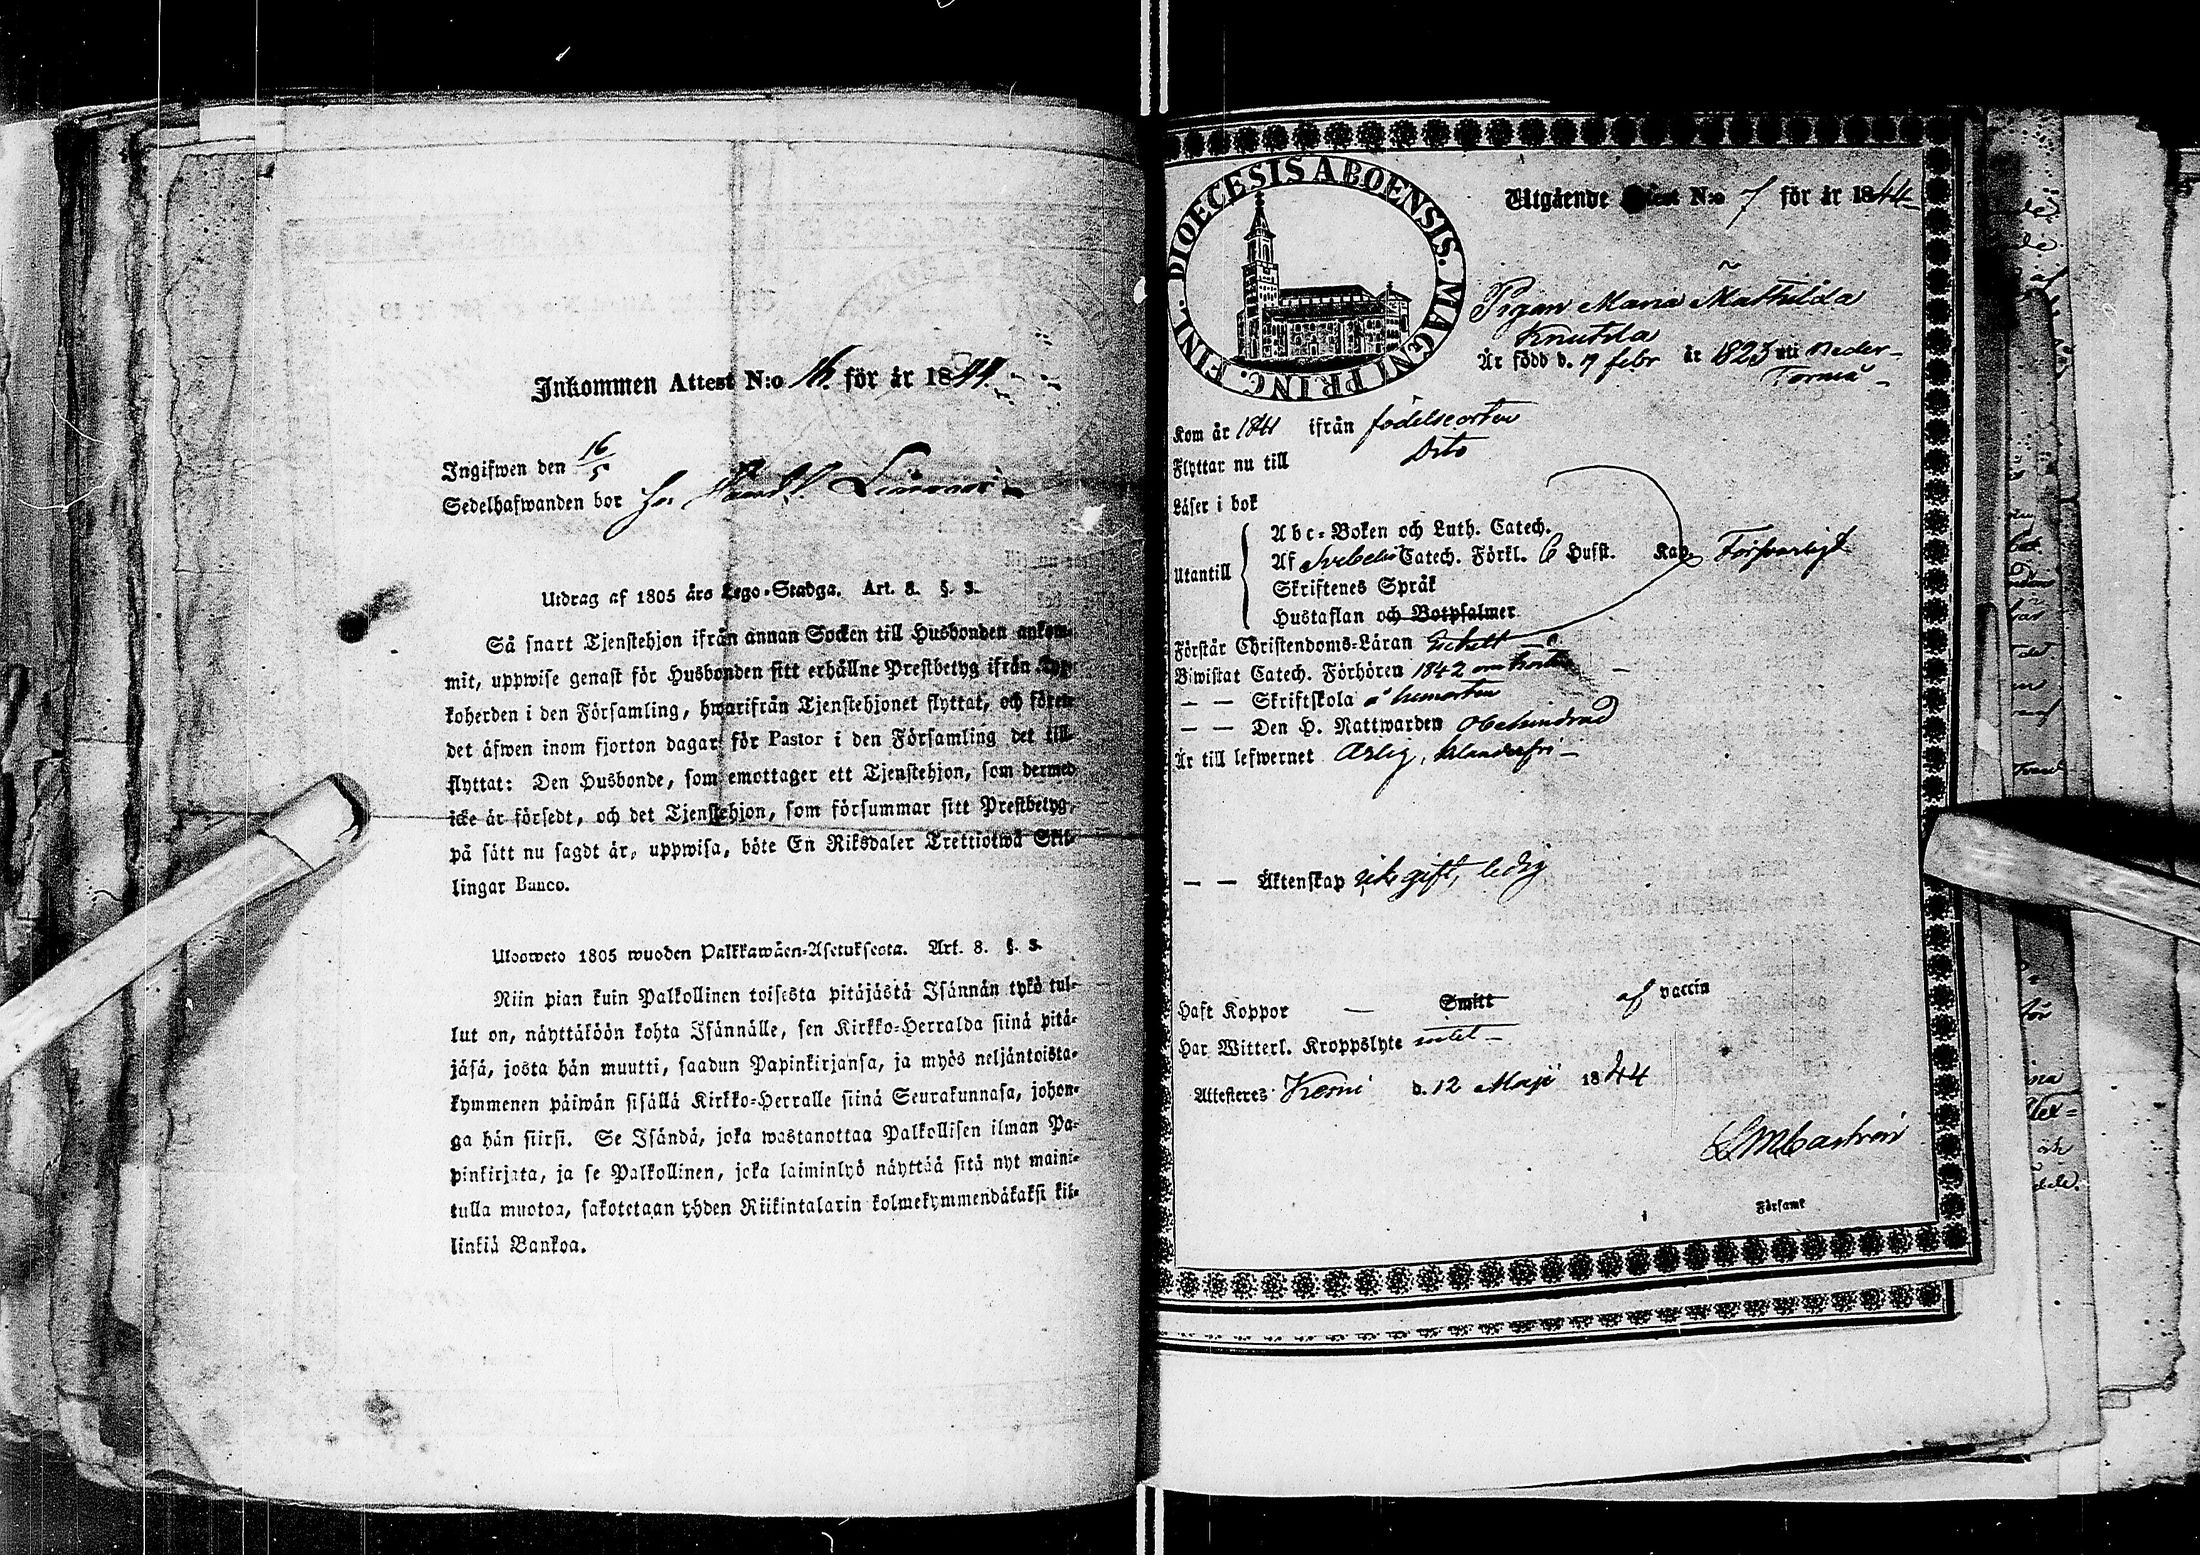 Inkommen Attest N:o 16. för år 1844.
Ingifwen den 16/5
Sedelhafwanden bor hos
Utdrag af 1805 års Lego-Stadga. Art. 8. §. 3.
Så snart Tjenstehjon ifrån annan Socken till Husbonden ankom-
mit, uppwise genast för Husbonden sitt erhållne Prestbetyg ifrån Kyr-
koherden i den Församling, hwarifrån Tjenstehjonet flyttat, och förete
det äfwen inom fjorton dagar för Pastor i den Församling det till-
flyttat: Den Husbonde, som emottager ett Tjenstehjon, som dermed
icke är försedt, och det Tjenstehjon, som försummar sitt Prestbetyg,
på sätt nu sagdt är, uppwisa, böte En Riksdaler Trettiotwå Skil-
lingar Banco.
Uloosweto 1805 wuoden Palkkawäen-Asetuksesta. Art. 8. §. 3.
Niin pian kuin Palkollinen toisesta pitäjästä Isännän tykö tul-
lut on, näyttäköön kohta Isännälle, sen Kirkko-Herralda siinä pitä-
jäsä, josta hän muutti, saadun Papinkirjansa, ja myös neljäntoista-
kymmenen päiwän sisällä Kirkko-Herralle siinä Seurakunnasa, johon-
ga hän siirsi. Se Isändä, joka wastanottaa Palkollisen ilman Pa-
pinkirjata, ja se Palkollinen, joka laiminlyö näyttää sitä nyt maini-
tulla muotoa, sakotetaan yhden Riikintalarin kolmekymmendäkaksi kil-
linkiä Bankoa.
DIOECESIS ABOENSIS. MAGNI PRINC. FINL.
Utgående Attest N:o 7 för år 1844
Pigan Maria Mathilda
Knutsda
Är född d. 17 febr år 1823 uti Neder-
Torneå
Kom år 1841 ifrån födelseorten
Flyttar nu till Dito
Läser i bok
Abc-Boken och Luth. Catech.
Utantill Af Svebelii Catech. Förkl. 6 Hufst. Kap. Försvarligt
Skriftenes Språk
Hustaflan och Botpsalmer
Förstår Christendoms-Läran Enkelt
Biwistat Catech. Förhören 1842 om hösten
— — Skriftskola å hemorten
— — Den H. Nattwarden Obehindrad
Är till lefwernet Ärlig, klanderfri
— — Äktenskap icke gift, ledig
Haft Koppor — Smitt af vaccin
Har Witterl. Kroppslyte intet
Attesteras Kemi d. 12 Maji 1844
EMCastrén
i Församl